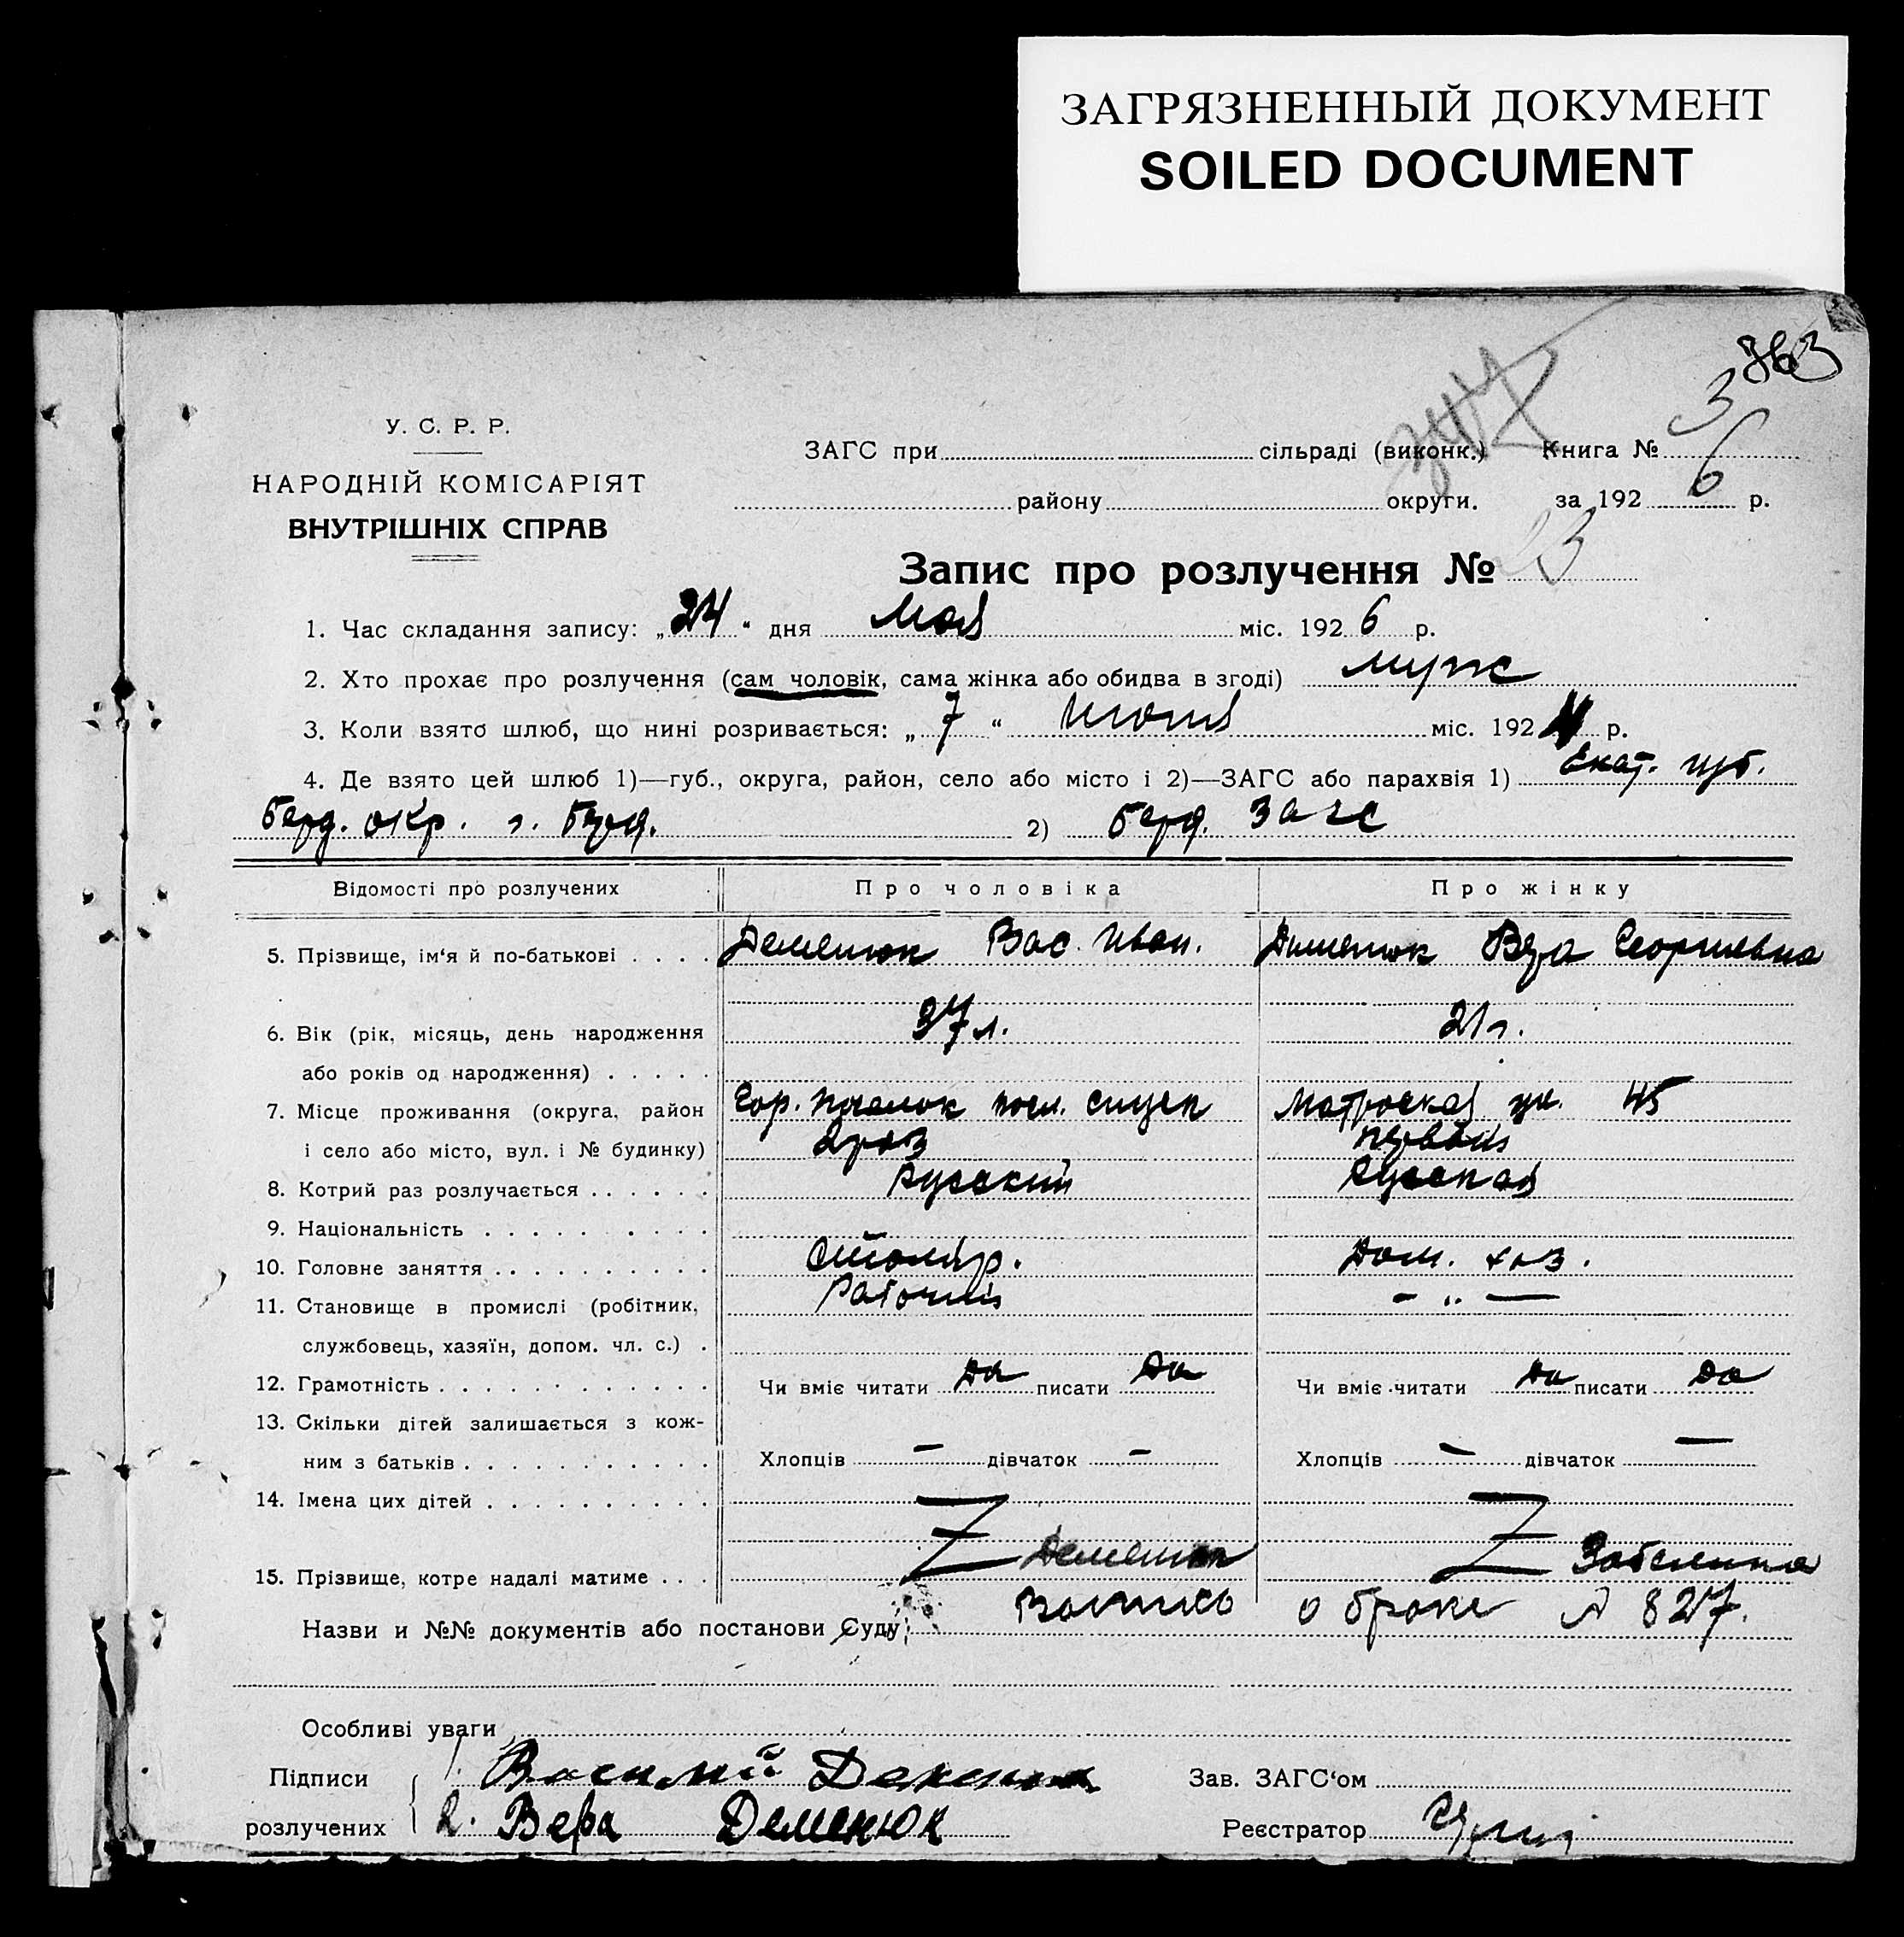 ЗАГРЯЗНЕННЫЙ ДОКУМЕНТ
SOILED DOCUMENT
363
У. С. Р. Р.
НАРОДНІЙ КОМІСАРІЯТ
ВНУТРІШНІХ СПРАВ
ЗАГС при сільраді (виконк.) Книга № 3
району округи. за 192 6 р.
Запис про розлучення № 23
1. Час складання запису: „24“ дня Мая міс. 192 6 р.
2. Хто прохає про розлучення (сам чоловік, сама жінка або обидва в згоді) муж
3. Коли взято шлюб, що нині розривається: „7“ міс. 192 р.
4. Де взято цей шлюб 1)—губ., округа, район, село або місто і 2)—ЗАГС або парахвія 1) Екат. губ.
Берд. окр. г. Берд. 2) Берд. Загс
Відомості про розлучених Про чоловіка Про жінку
5. Прізвище, ім‘я й по-батькові . . . . Деменюк Вас. Иван. Деменюк Вера Георгиевна
6. Вік (рік, місяць, день народження 37 л. 21 г.
або років од народження) . . . . .
7. Місце проживання (округа, район Гор. Матросская ул. 45
і село або місто, вул. і № будинку) 2 раз первый
8. Котрий раз розлучається . . . . . . Русский Русская
9. Національність . . . . . . . . . .
10. Головне заняття . . . . . . . . . . Столяр. Дом. хоз.
11. Становище в промислі (робітник, Рабочий — „ —
службовець, хазяїн, допом. чл. с.) .
12. Грамотність . . . . . . . . . . . . Чи вміє читати да писати да Чи вміє читати да писати да
13. Скільки дітей залишається з кож-
ним з батьків . . . . . . . . . . . Хлопців — дівчаток — Хлопців — дівчаток —
14. Імена цих дітей . . . . . . . . . .
15. Прізвище, котре надалі матиме . . . Деменюк Забелина
Назви и №№ документів або постанови Суду о браке № 827.
Особливі уваги
Підписи 1. Василий Деменюк Зав. ЗАГС‘ом
розлучених 2. Вера Деменюк Реєстратор